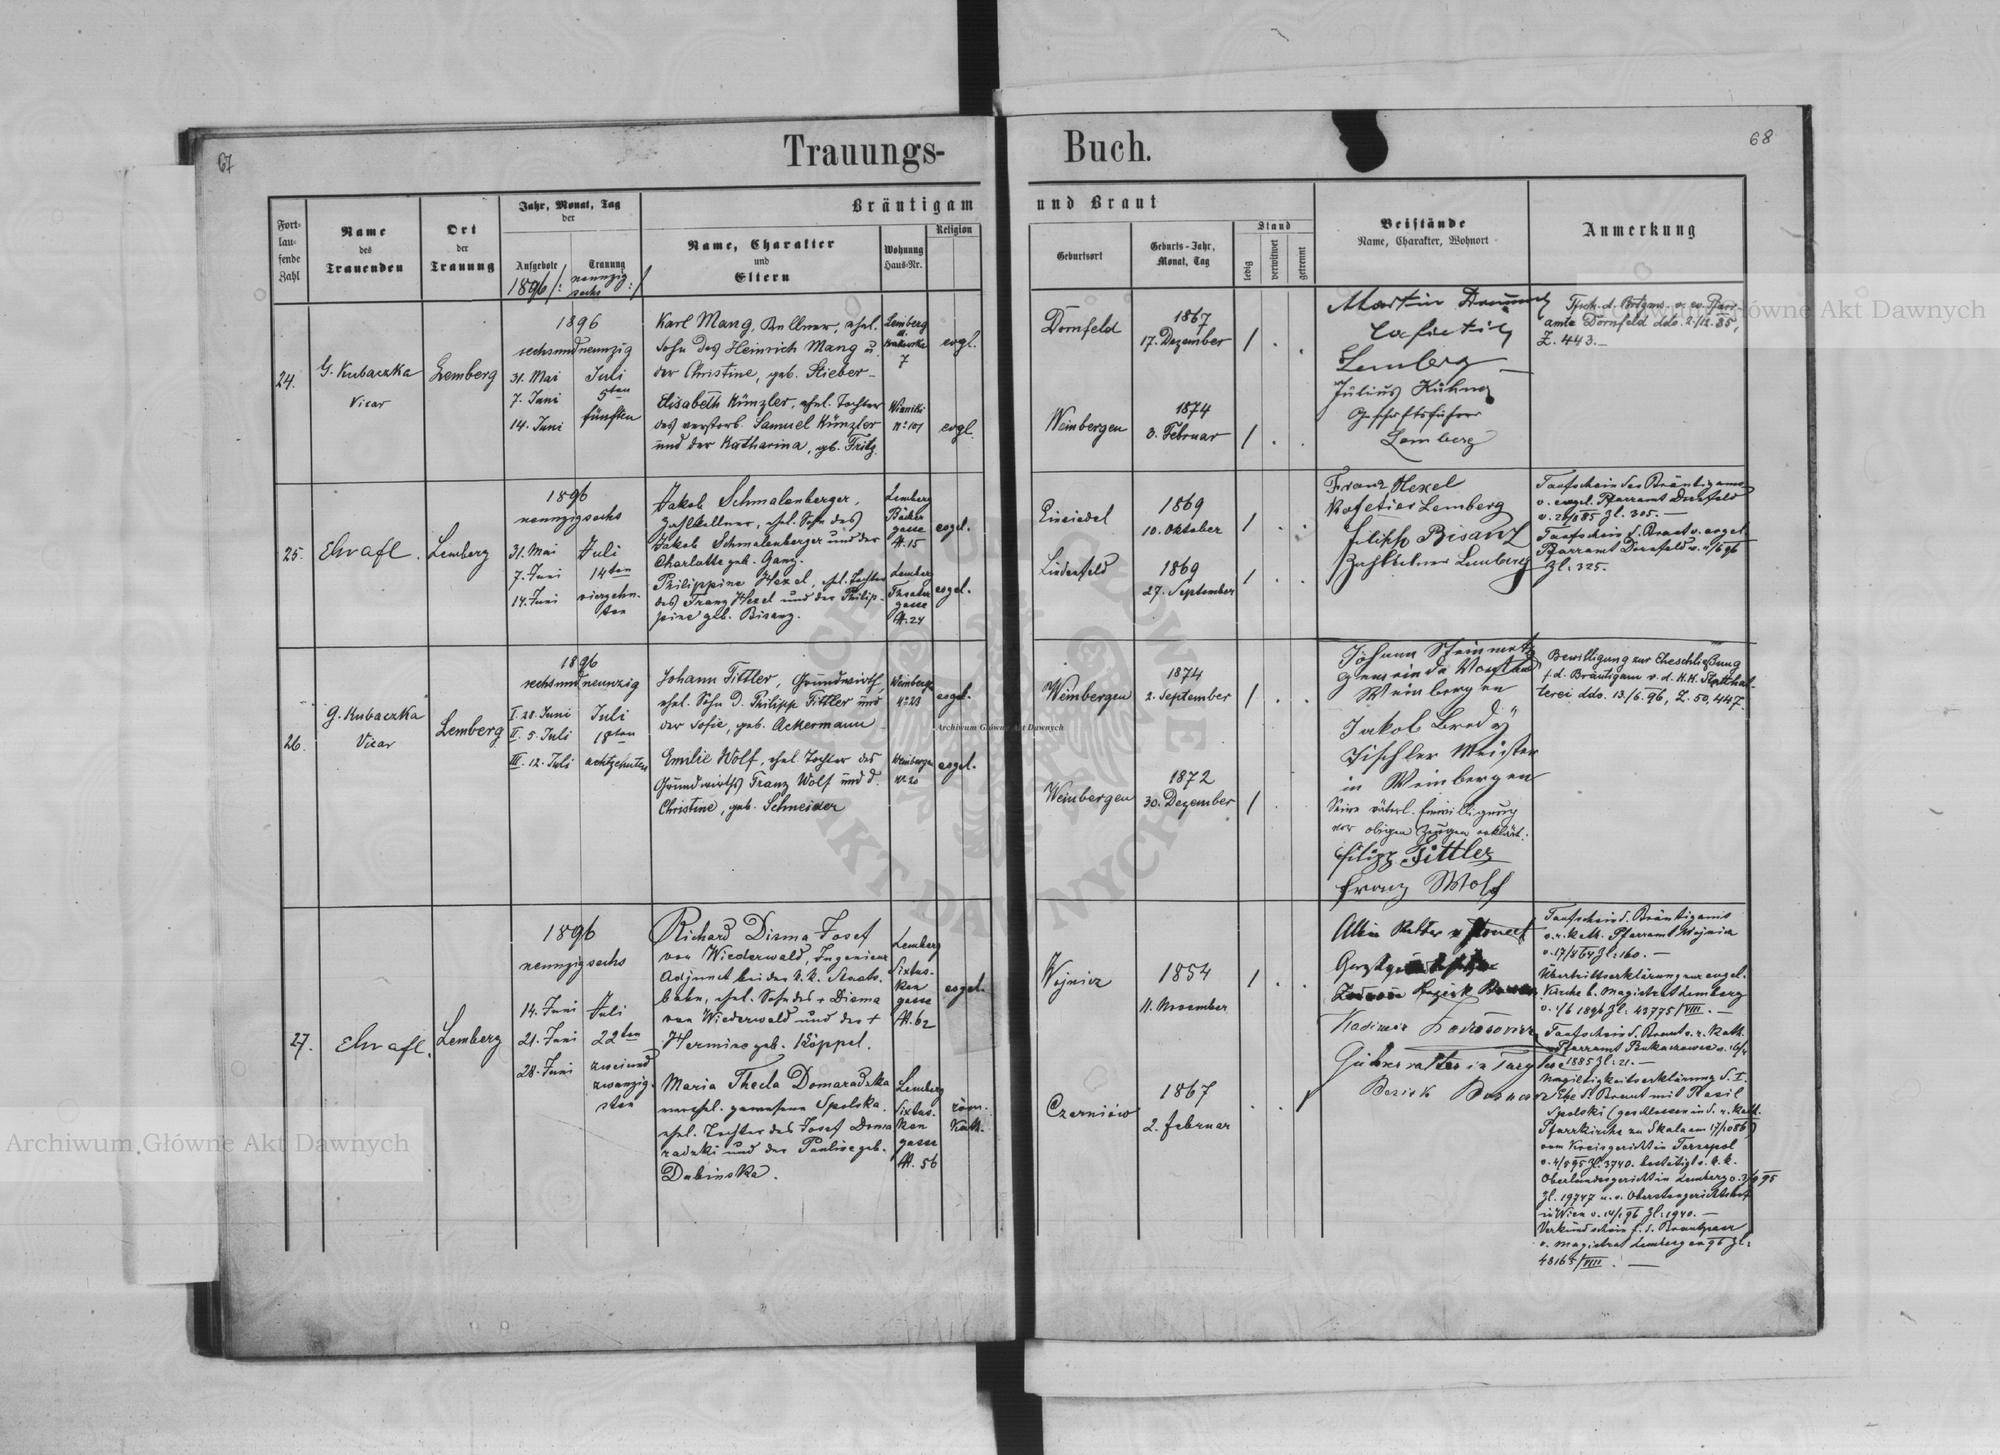 67
Trauungs-
Buch.
68
Fort-
lau-
fende
Zahl
Name
des
Trauenden
Ort
der
Trauung
Jahr, Monat, Tag
der
Aufgebote
Trauung
1896 /: neunzig
sechs :/
Bräutigam
und Braut
Name, Charakter
und
Eltern
Wohnung
Haus-Nr.
Religion
Geburtsort
Geburts-Jahr,
Monat, Tag
Stand
ledig
verwitwet
getrennt
Beistände
Name, Charakter, Wohnort
Anmerkung
24.
G. Kubaczka
Vicar
Lemberg
1896
sechsundneunzig
31. Mai
7. Juni
14. Juni
Juli
5ten
fünften
Karl Mang, Kellner, ehel.
Sohn des Heinrich Mang u.
der Christine, geb. Stieber
Lemberg
7
evgl.
Elisabeth Künzler, ehel. Tochter
des verstorb. Samuel Künzler
und der Katharina, geb. Fritz.
Winniki
No 101
evgl.
Dornfeld
1867
17. Dezember
Weinbergen
1874
3. Februar
Martin
Lemberg
Julius Kühner
Geschäftsführer
Lemberg
Tfsch. d. Brtgms. v. ev. Pfarr-
amte Dornfeld ddo. 2./12. 85,
Z. 443.
25.
Ehrafl.
Lemberg
1896
neunzigsechs
31. Mai
7. Juni
14. Juni
Juli
14ten
vierzehn-
ten
Jakob Schmalenberger,
Zahlkellner, ehel. Sohn des
Jakob Schmalenberger und der
Charlotte geb. Ganz.
Lemberg
Bäcker
gasse
N. 15
evgel.
Philippine Hexel, ehel. Tochter
des Franz Hexel und der Philip-
pine geb. Bisanz.
Lemberg
Theater
gasse
N. 24
evgel.
Einsiedel
1869
10. Oktober
Lindenfeld
1869
27. September
Franz Hexel
Kafetier Lemberg
Filipp Bisanz
Zahlkelner Lemberg
Taufschein des Bräutigams
v. evgel. Pfarramt Dornfeld
Zl. 305.
Taufschein d. Braut v. evgel.
Pfarramt Dornfeld
Zl. 325.
26.
G. Kubaczka
Vicar
Lemberg
1896
sechsundneunzig
I. 28. Juni
II. 5. Juli
III. 12. Juli
Juli
18ten
achtzehnten
Johann Tittler, Grundwirth,
ehel. Sohn d. Philipp Tittler und
der Sofie, geb. Ackermann
Weinbergen
No 23
evgel.
Emilie Wolf, ehel. Tochter des
Grundwirths Franz Wolf und d.
Christine, geb. Schneider
Weinbergen
No 20
evgel.
Weinbergen
1874
2. September
Weinbergen
1872
30. Dezember
Johann Steinmetz
Gemeinde Vorstand
Weinbergen
Jakob Bredÿ
Tischler Meister
in Weinbergen
Seine väterl. Einwilligung
vor obigen Zeugen erklärt.
Filipp Tittler
Franz Wolf
Bewilligung zur Eheschließung
f. d. Bräutigam v. d. K.K. Statthal-
terei ddo. 13./6. 96, Z. 50,447.
27.
Ehrafl.
Lemberg
1896
neunzigsechs
14. Juni
21. Juni
28. Juni
Juli
22ten
zweiund
zwanzig-
sten
Richard Disma Josef
von Wiederwald, Ingenieur
Adjunct bei der k. k. Staats-
bahn, ehel. Sohn des + Disma
von Wiederwald und der +
Hermine geb. Köppel.
Lemberg
Sixtus-
ken
gasse
N. 62
evgel.
Maria Thecla Domaradzka
verehel. gewesene Spolska,
ehel. Tochter des Josef Doma
radzki und der Pauline geb.
Dubinska.
Lemberg
Sixtus-
ken
gasse
N. 56
röm.
kath.
Wojnicz
1854
11. November
Czerniów
1867
2. Februar
Albin
Taufschein d. Bräutigams
v. r. kath. Pfarramt Wojnicz
Zl. 160.
Übertrittserklärung zur evgel.
Kirche b. Magistrat Lemberg
1896 Zl. 43775/VIII.
Taufschein d. Braut v. r. kath.
Pfarramt Bukaczowce
1885 Zl. 21.
Ungiltigkeitserklärung d. I.
Ehe d. Braut mit Basil
Spolski (geschlossen in d. r. kath.
Pfarrkirche zu Skala
vom Kreisgericht in Tarnopol
Zl. 3740. bestätigt v. k. k.
Oberlandesgericht in Lemberg
Zl. 19747 u. v. Obersten gerichtshof
in Wien Zl. 1940.
Verkündschein f. d. Brautpaar
v. Magistrat Lemberg Zl.
48165/VIII.
Archiwum Główne Akt Dawnych
Archiwum Główne Akt Dawnych
Archiwum Główne Akt Dawnych